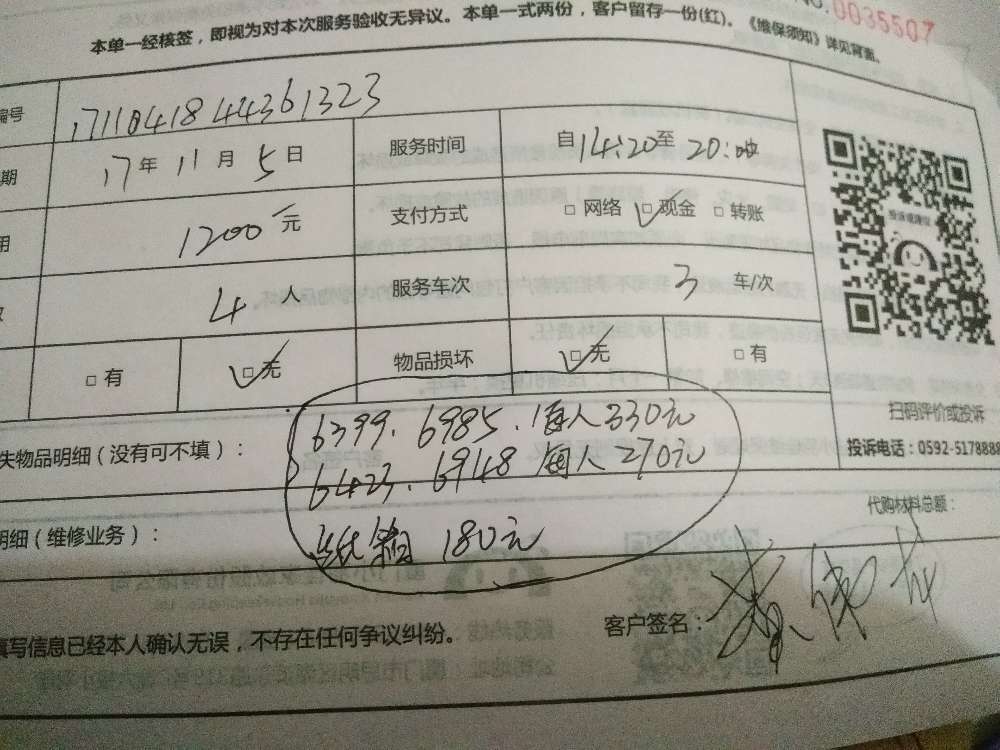 本单一经核签，即视为对本次服务验收无异议。本单一式两份，客户留存一份(红)。《维保须知》详见背面。
NO.0035507
编号 1711041844361323
期 17年11月5日 服务时间 自14:20至20:
用 1200元 支付方式 □网络 □现金 □转账
4人 服务车次 3车/次
□有 □无 物品损坏 □无 □有
投诉或建议
扫码评价或投诉
投诉电话：0592-5178888
失物品明细（没有可不填）：
6399、6985、每人330元
6423、6948 每人270元
纸箱 180元
明细（维修业务）：
代购材料总额：
填写信息已经本人确认无误，不存在任何争议纠纷。
客户签名：